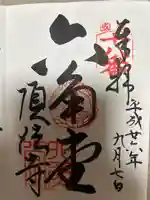 奉拝
平成廿八年
九月七日
六角堂
頂法寺